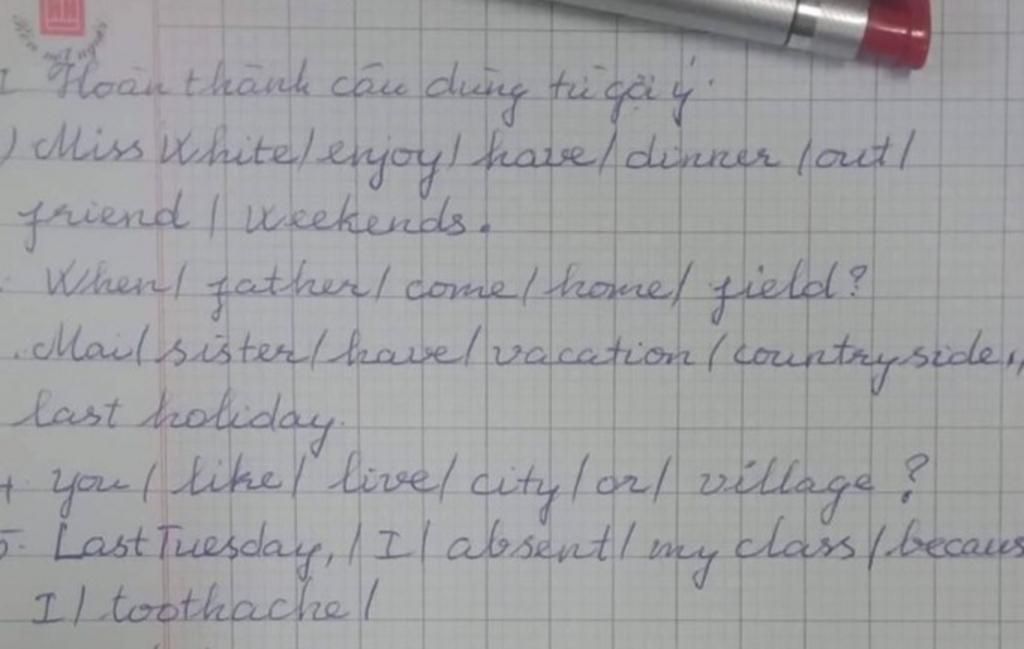 I Hoàn thành câu dùng từ gợi ý.
) Miss White/enjoy/have/dinner/out/
friend/weekends.
When/father/come/home/field?
.Mai/sister/have/vacation/countryside,
last holiday.
you/like/live/city/or/village?
5. Last Tuesday,/I/absent/my class/becaus
I/toothache/